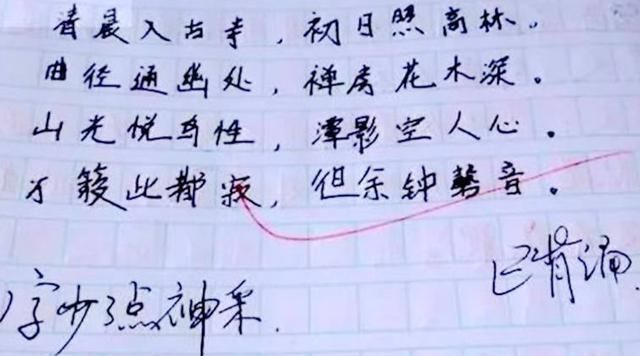 清晨入古寺，初日照高林。
曲径通幽处，禅房花木深。
山光悦鸟性，潭影空人心。
万籁此都寂，但余钟磬音。
已背诵.
字少了点神采.